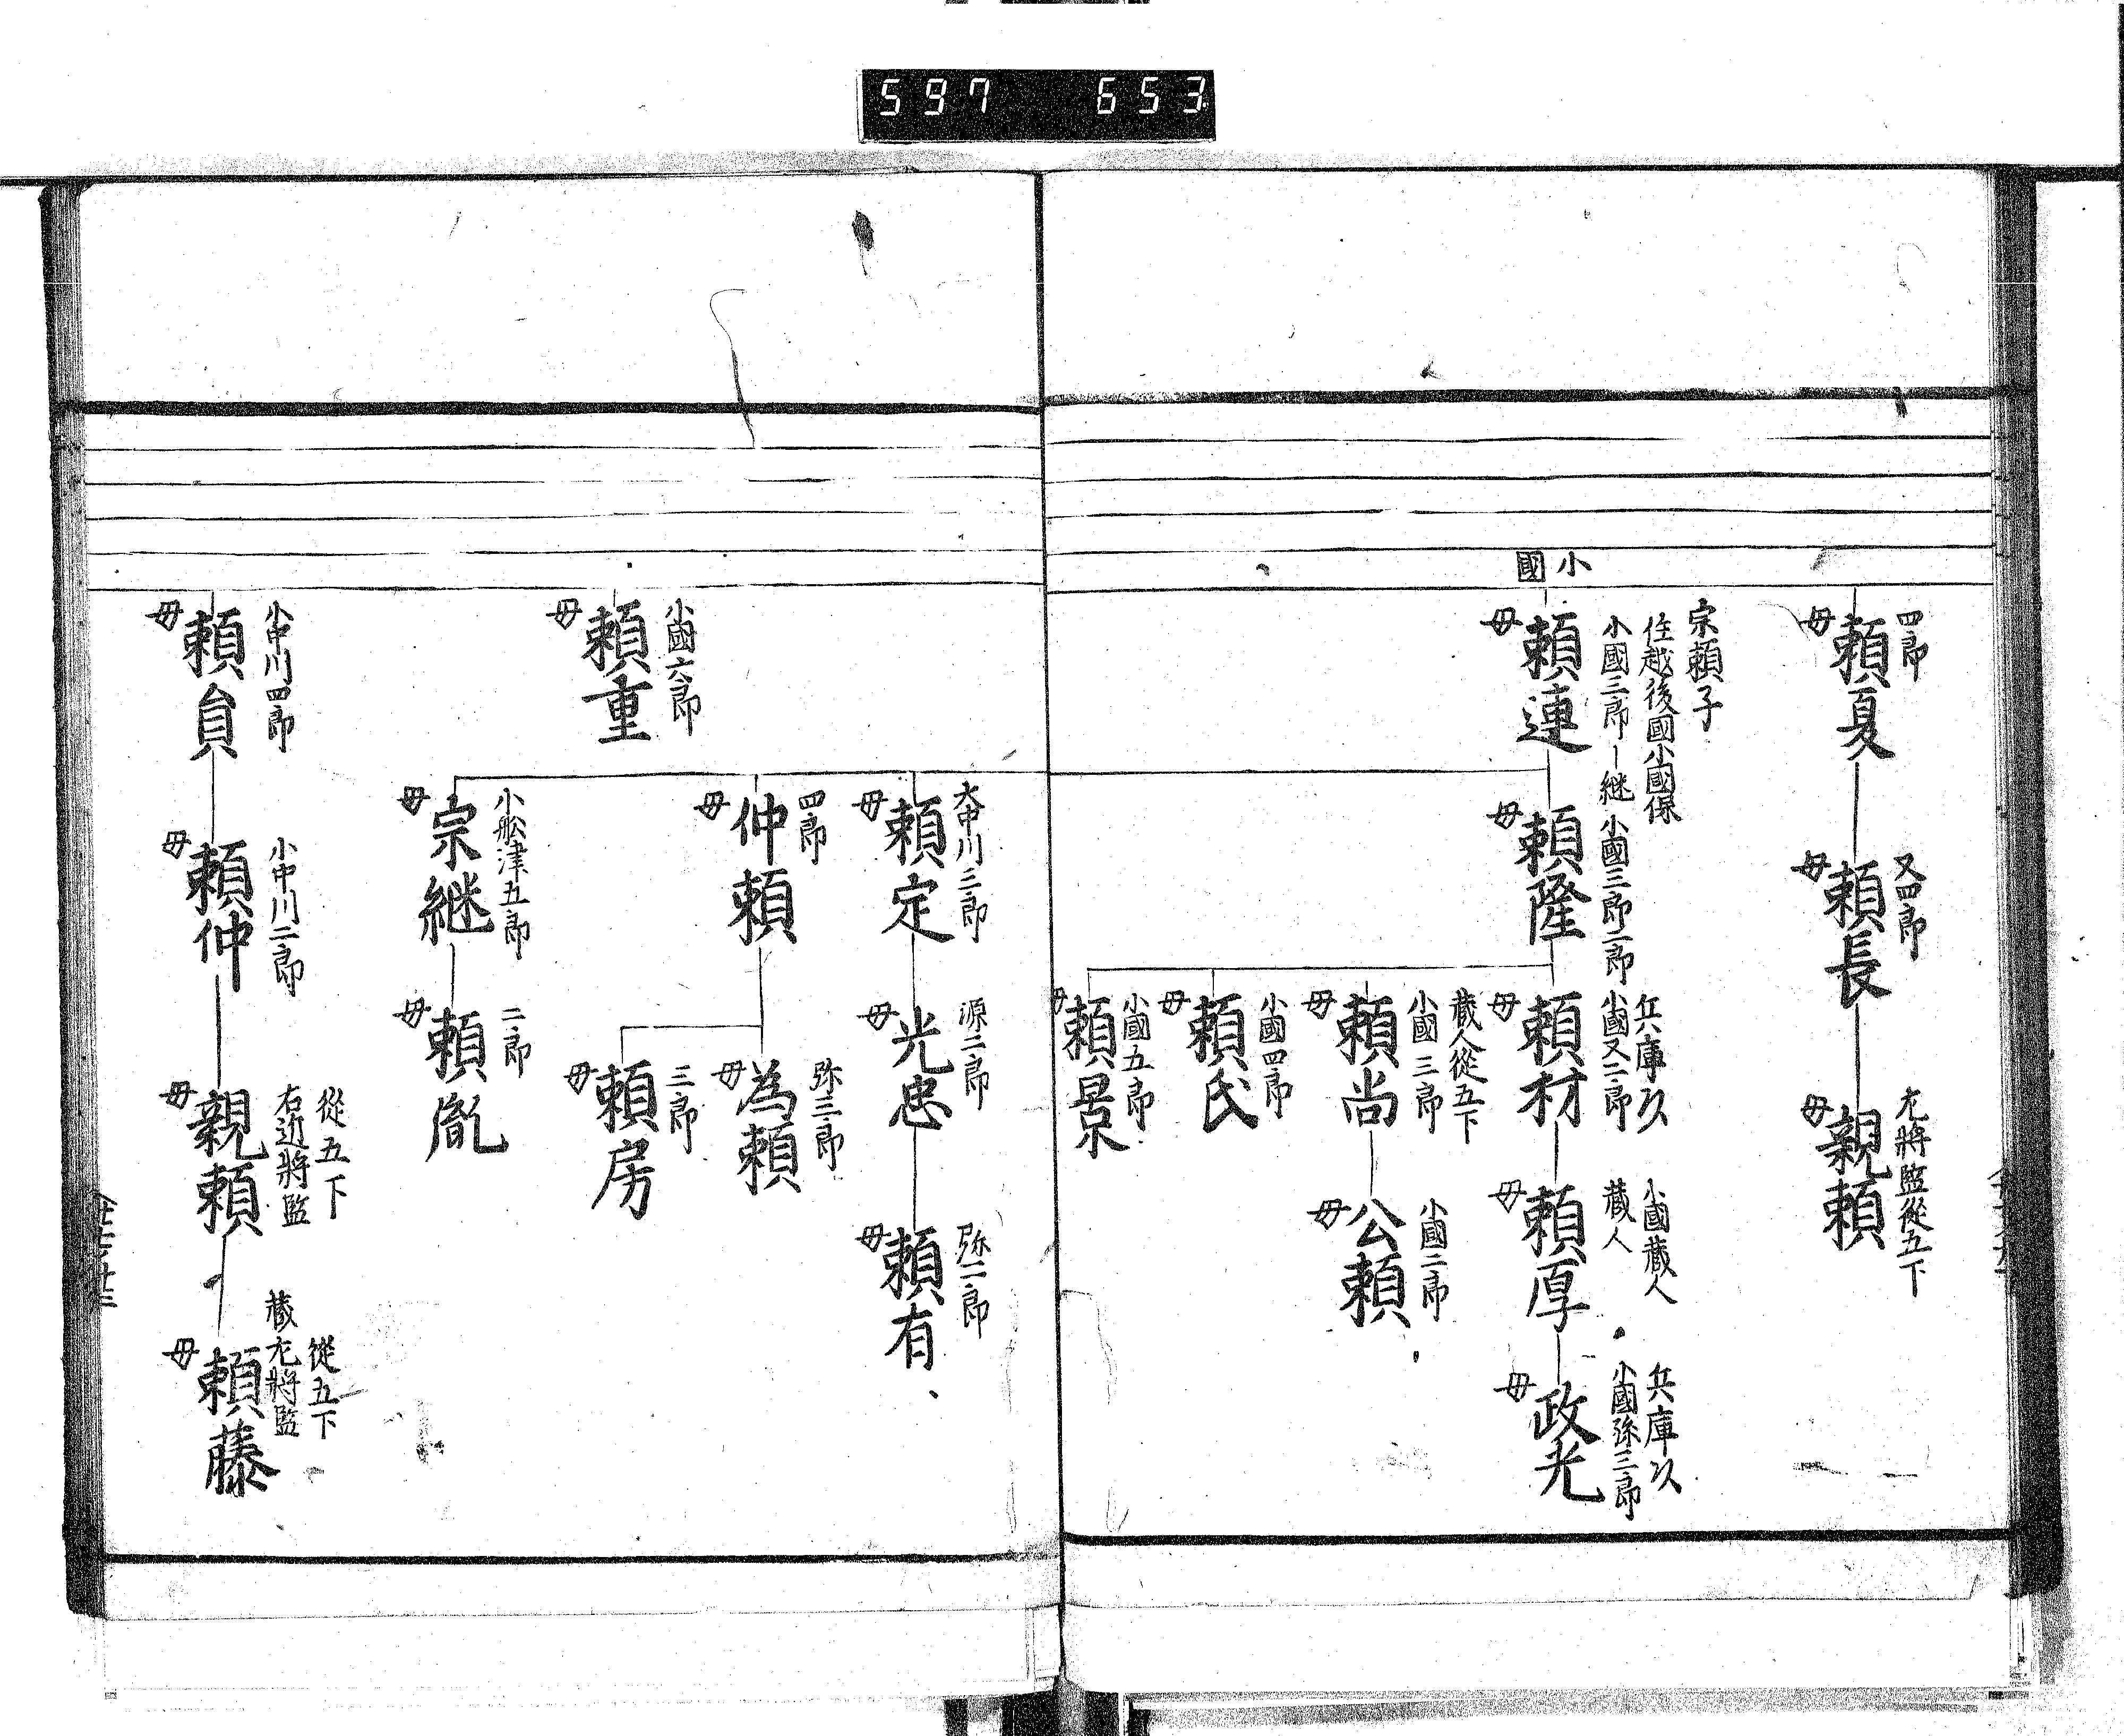 597 653
四郎
母 頼夏
又四郎
母 頼長
左將監從五下
母 親頼
小國
宗頼子
住越後國小國保
小國三郎一継
母 頼連
小國三郎二郎
母 頼隆
兵庫助
小國又二郎
母 頼村
小國蔵人
蔵人
母 頼厚
兵庫助
小國弥三郎
母 政光
蔵人從五下
小國三郎
母 頼尚
小國二郎
母 公頼
小國四郎
母 頼氏
小國五郎
母 頼景
大中川三郎
母 頼定
源二郎
母 光忠
弥二郎
母 頼有
四郎
母 仲頼
弥三郎
母 為頼
三郎
母 頼房
小舩津五郎
母 宗継
二郎
母 頼胤
小國六郎
母 頼重
小中川四郎
母 頼員
小中川二郎
母 頼仲
從五下
右近將監
母 親頼
從五下
蔵左將監
母 頼藤